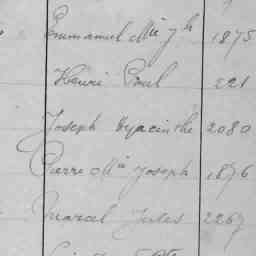 Emmanuel Mie Jh 1875
Henri Paul 221
Joseph Hyacinthe 2080
Pierre Mie Joseph 1876
Marcel Jules 2267